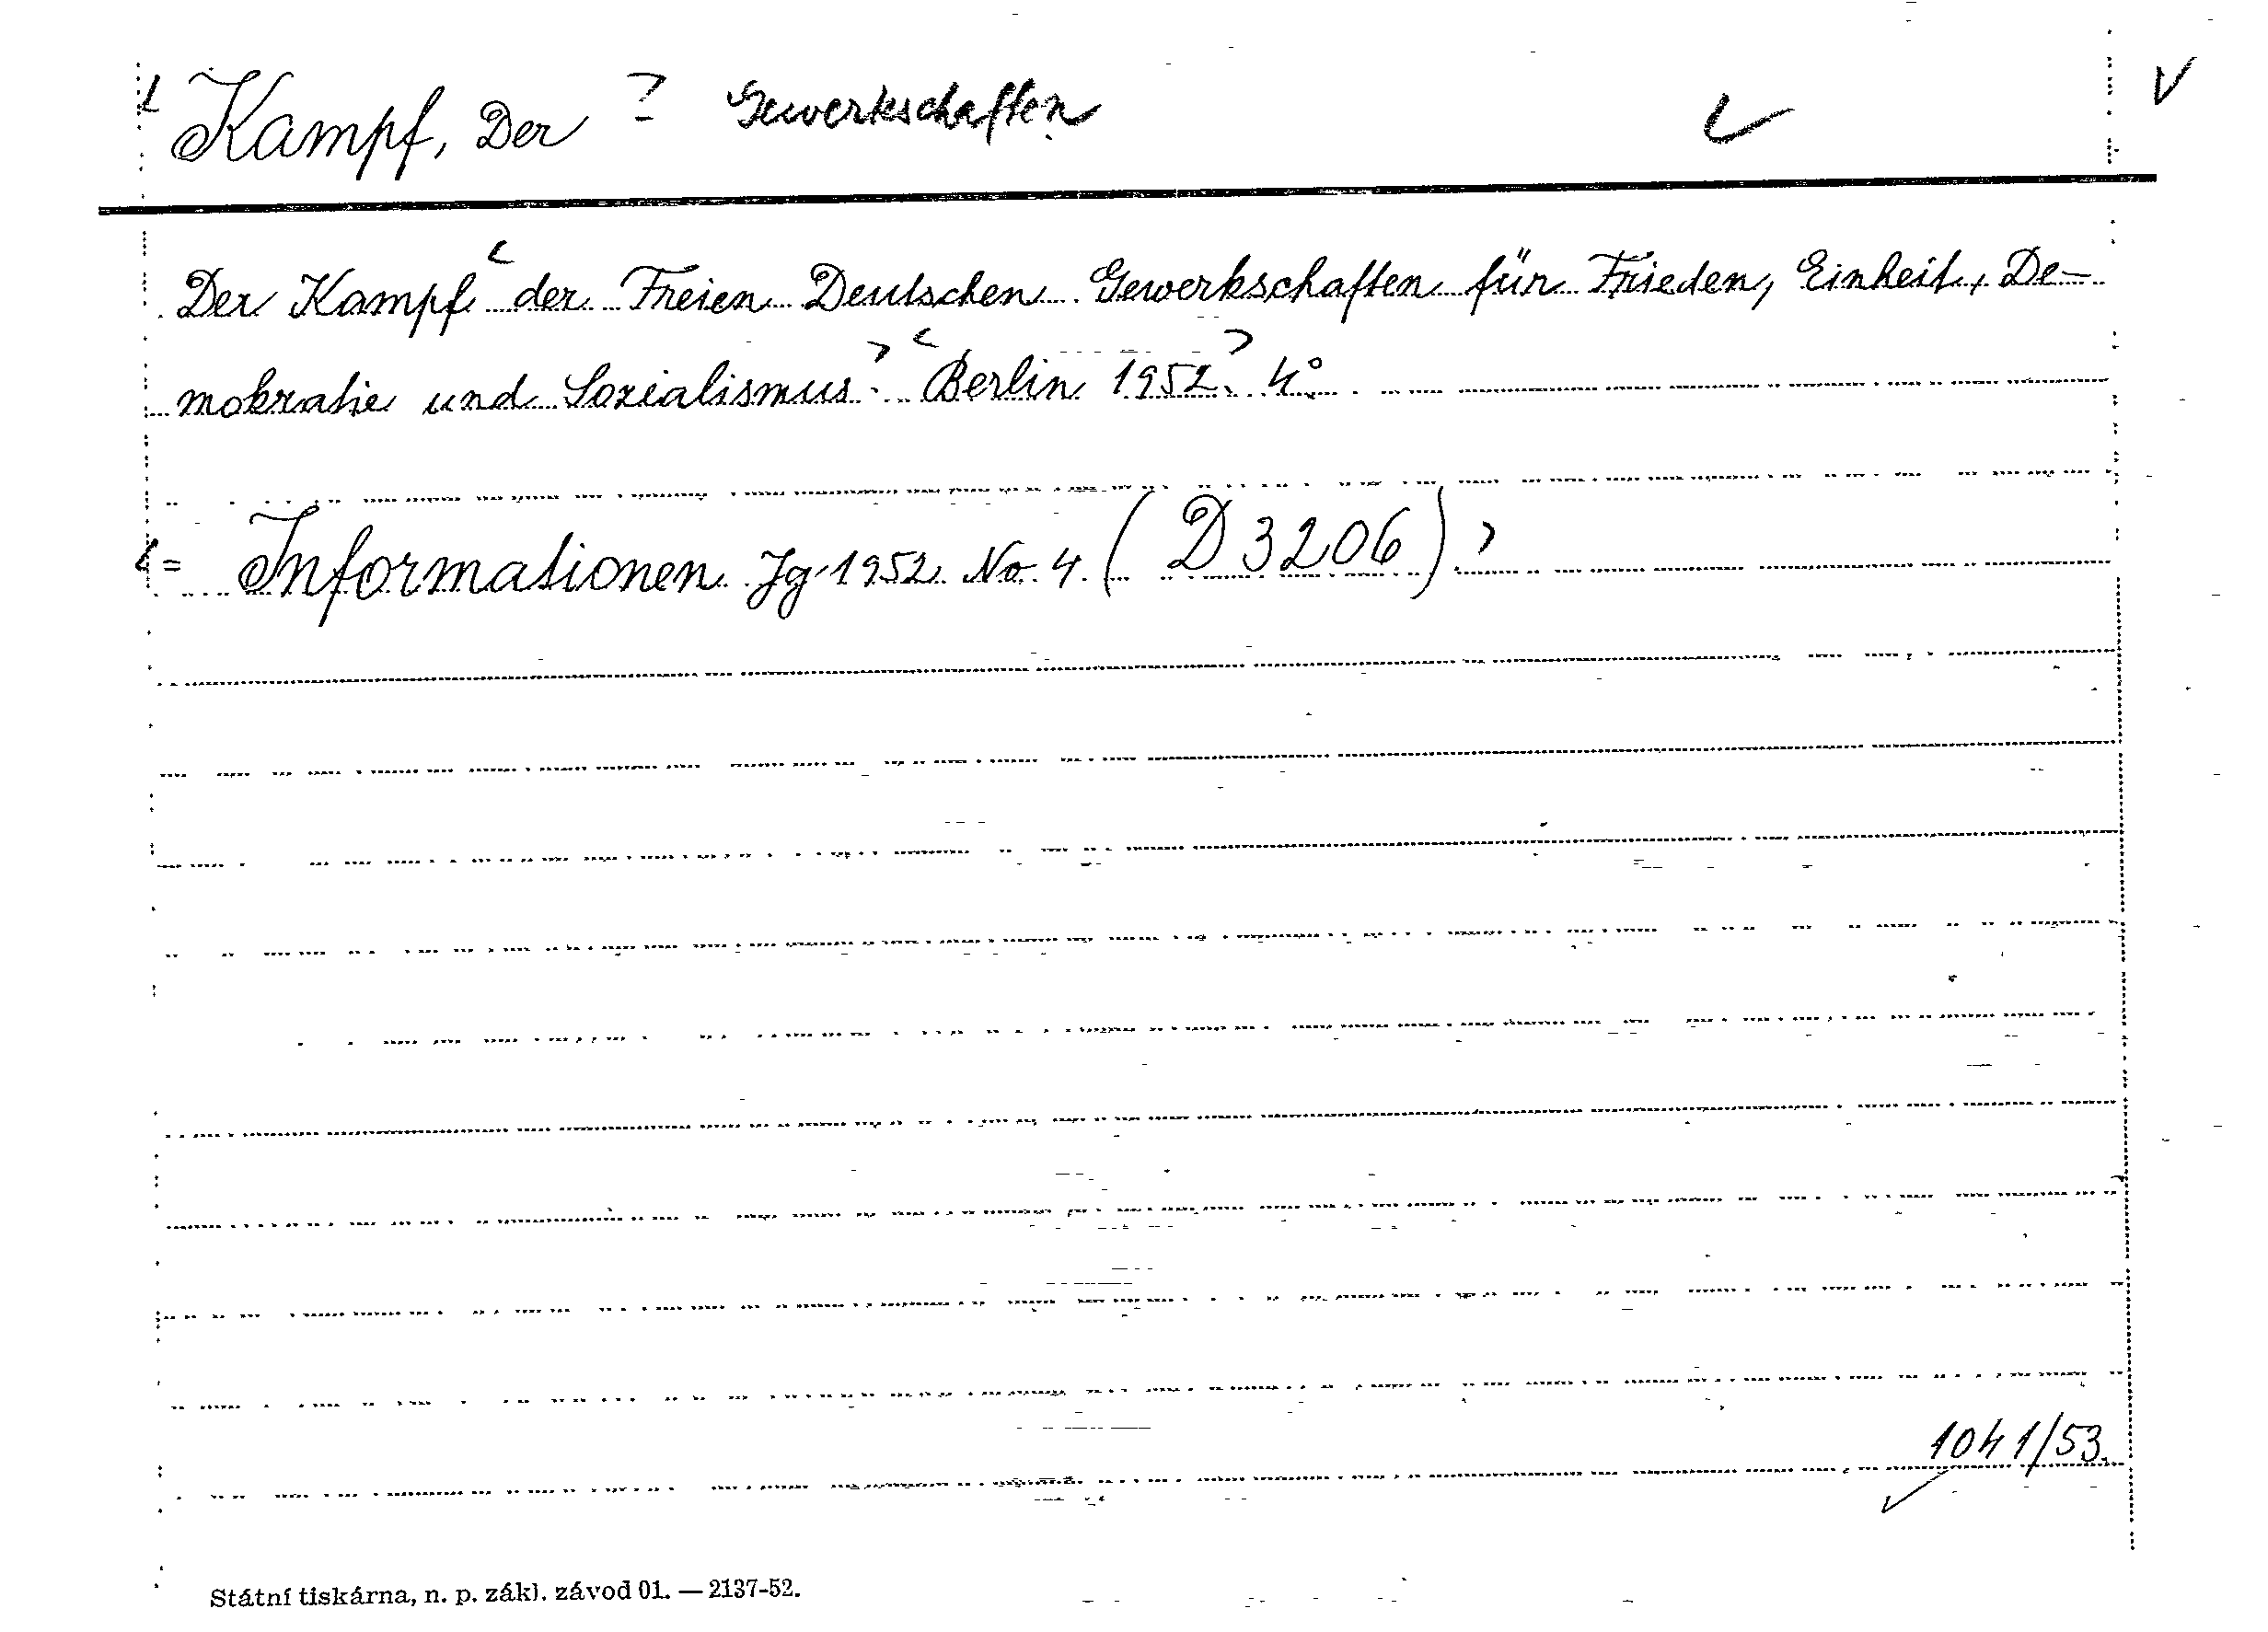 Kampf, Der Gewerkschaften
Der Kampf der Freien Deutschen Gewerkschaften für Frieden, Einheit, De-
mokratie und Sozialismus. Berlin 1952. 4°.
= Informationen Jg. 1952 No. 4. (D 3206)
1041/53.
Státní tiskárna, n. p. zákl. závod 01. — 2137-52.